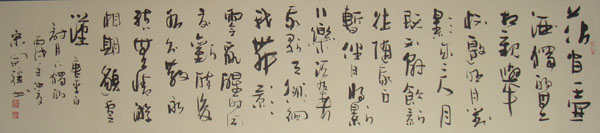 花間一壺
酒獨酌無
相親舉杯
邀明月對
影成三人月
既不解飲影
徒隨我身
暫伴月將影
行樂須及春
我歌月徘徊
我舞影
零亂醒時同
交歡醉後
各分散永
結無情遊
相期邈雲
漢 唐李白
詩月下獨酌